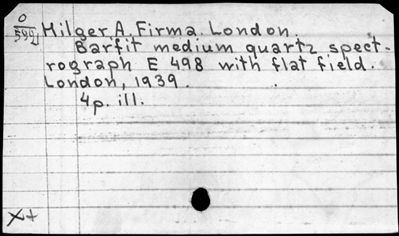 O
599 Hilger A. Firma. London.
Barfit medium quartz spect-
rograph E 498 with flat field.
London, 1939.
4p. ill.
X+